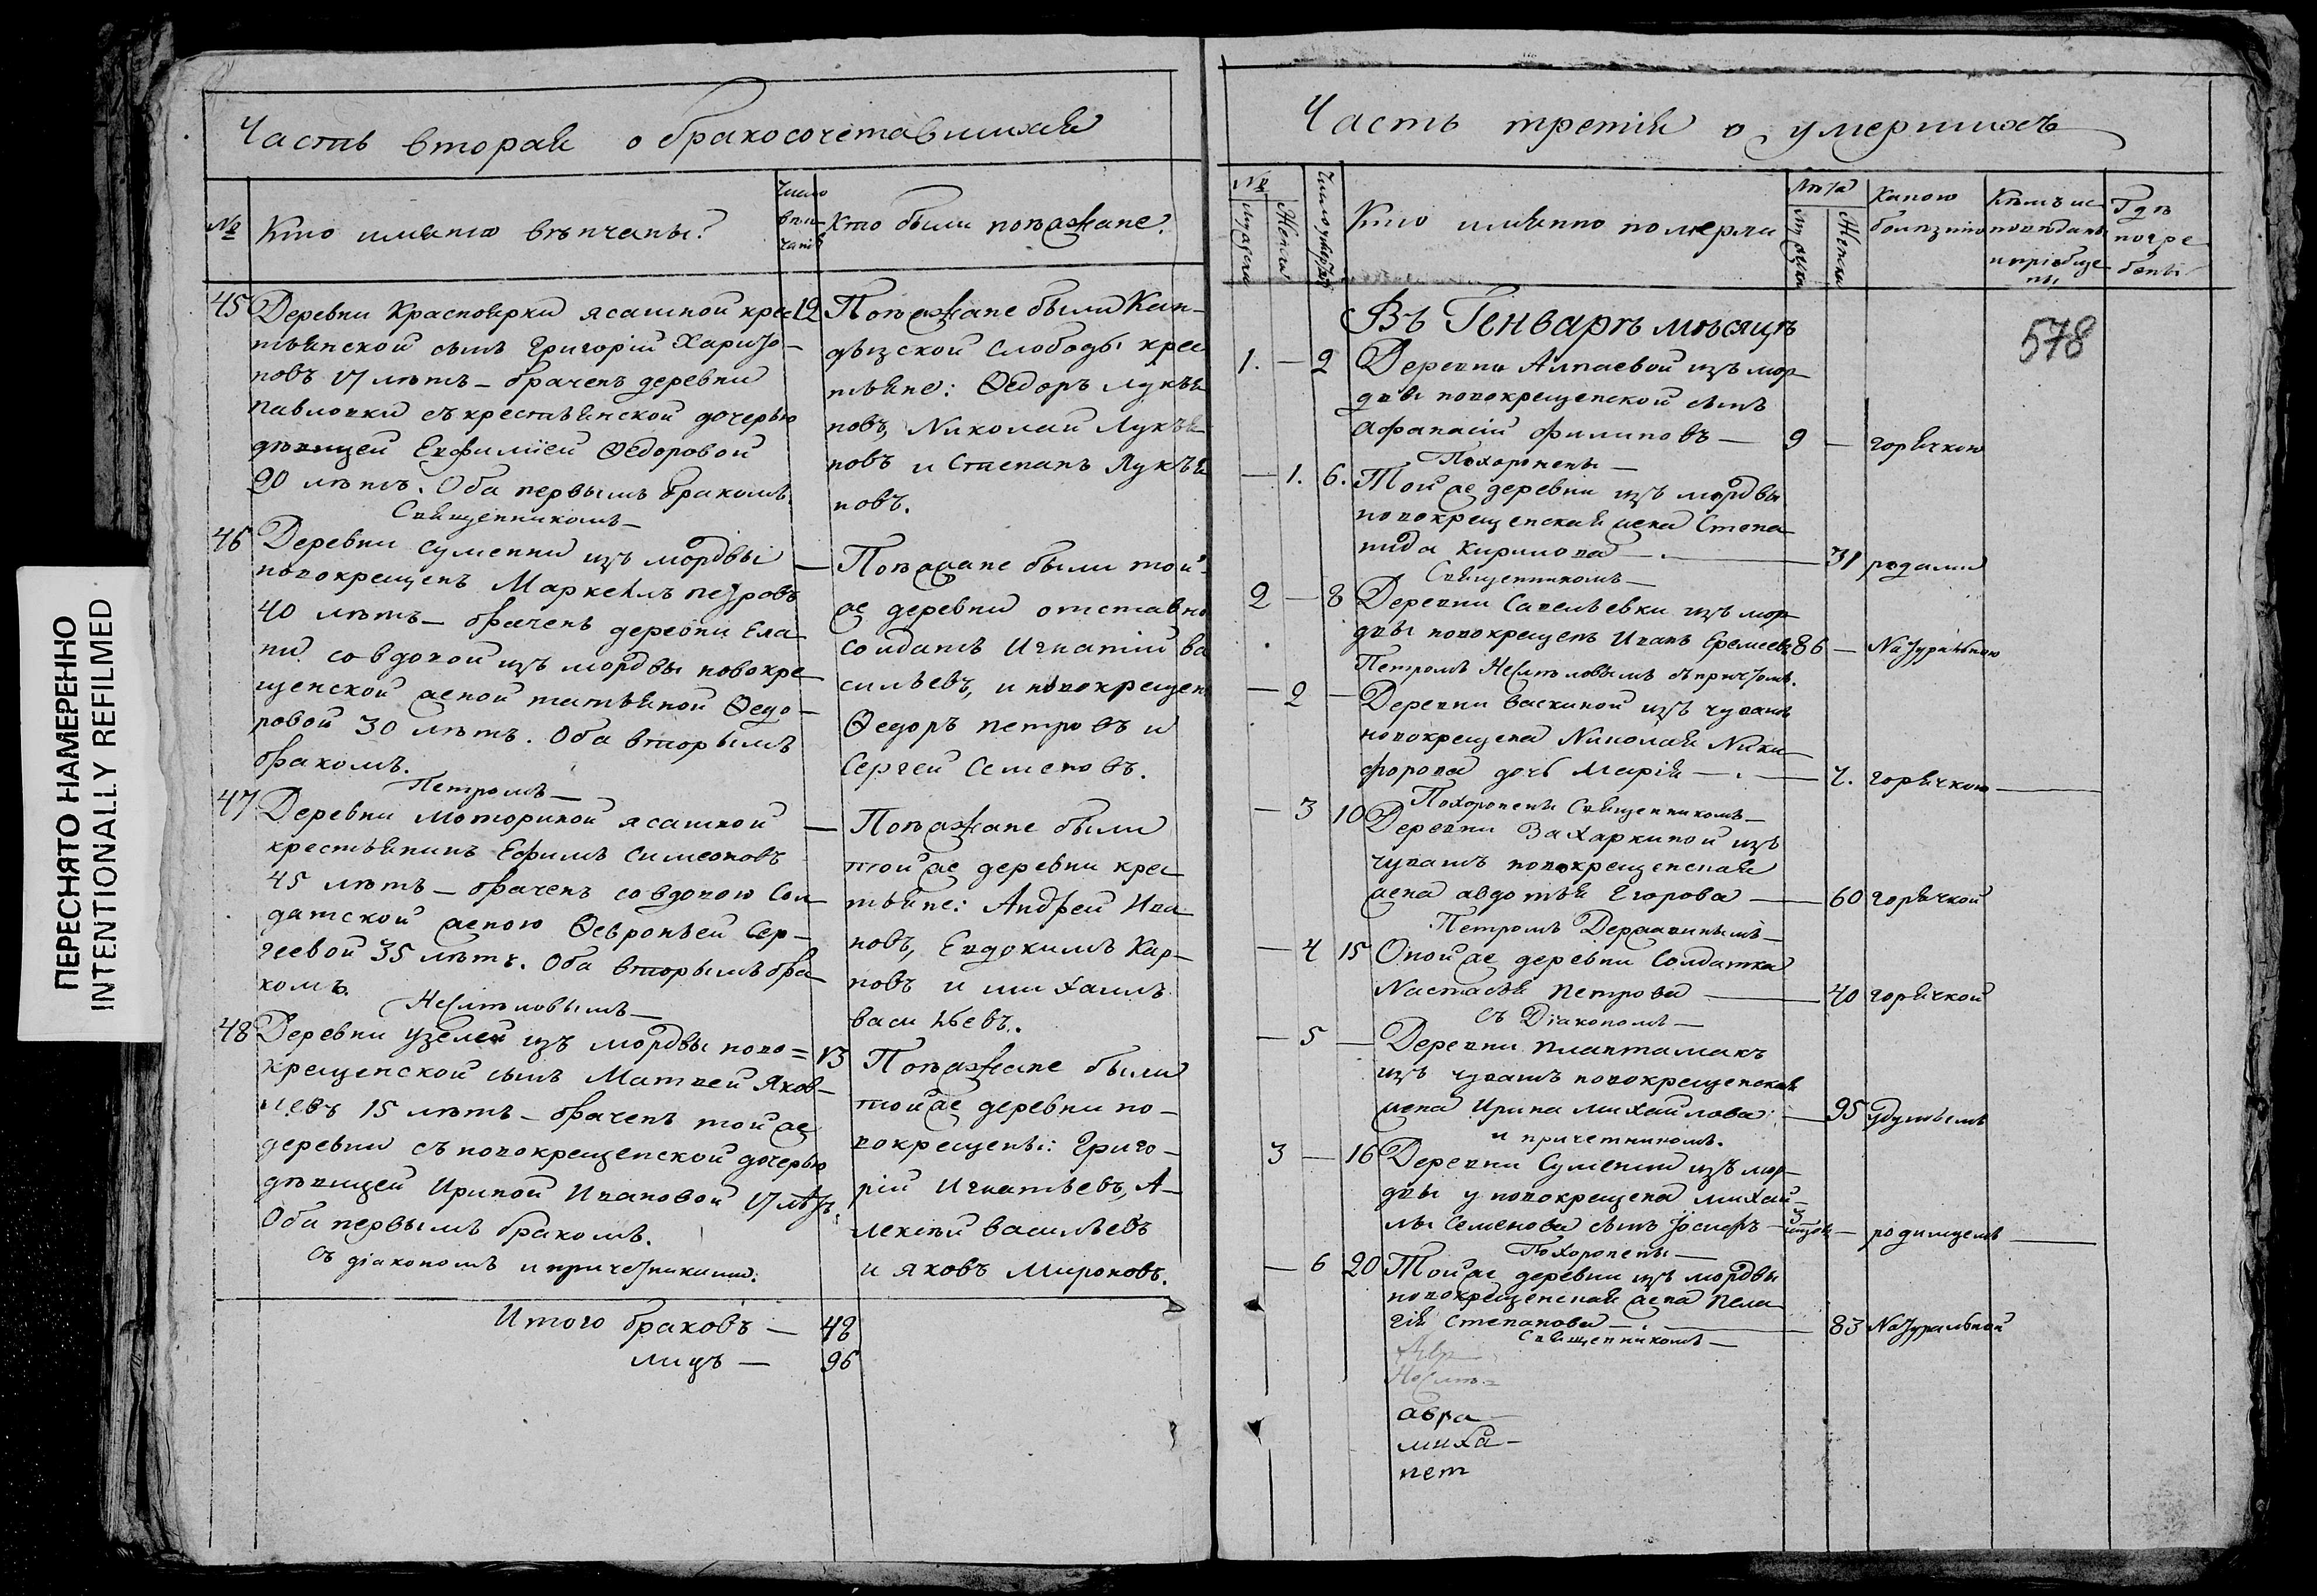 ПЕРЕСНЯТО НАМЕРЕННО
INTENTIONALLY REFILMED
Часть вторая о бракосочетавшихся
№
Кто именно венчаны?
Число
венчаніѣ
Кто были поѣзжане?
45 Деревни Красноярки ясашной крес 12
тьянской сынъ Григорій Харито-
новъ 17 лѣтъ – браченъ деревни
Павловки съ крестьянской дочерью
дѣвицей Евфиміей Ѳедоровой
20 лѣтъ. Оба первымъ бракомъ.
Священникомъ –
Поѣзжане были Кан-
дызской слободы крес
тьяне: Ѳедоръ Лукъя
новъ, Николай Лукъя
новъ и Степанъ Лукъя
новъ.
46 Деревни Сумелки изъ мордвы –
новокрещенъ Маркелъ Петровъ
40 лѣтъ – браченъ деревни Ела
ни со вдовой изъ мордвы новокре
щенской женой Татьяной Ѳедо-
ровой 30 лѣтъ. Оба вторымъ
бракомъ.
Петромъ –
Поѣзжане были той
же деревни отставно
солдатъ Игнатій Ва
сильевъ, и новокрещен
Ѳедоръ Петровъ и
Сергей Семеновъ.
47 Деревни Моториной ясашной –
крестьянинъ Ефимъ Симеоновъ
45 лѣтъ – браченъ со вдовою Сол
датской женою Ѳевроньей Сер-
геевой 35 лѣтъ. Оба вторымъ бра
комъ.
Несмѣловымъ –
Поѣзжане были
той же деревни крес
тьяне: Андрей Ива
новъ, Евдокимъ Кар-
повъ и Михаилъ
Васильевъ.
48 Деревни Узелей изъ мордвы ново= 13
крещенской сынъ Матвей Яков-
левъ 15 лѣтъ – браченъ той же
деревни съ новокрещенской дочерью
дѣвицей Ириной Ивановой 17 лѣтъ.
Оба первымъ бракомъ.
съ діакономъ и причетниками.
Поѣзжане были
той же деревни но-
вокрещены: Григо-
рій Игнатьевъ, А-
лексѣй Васильевъ
и Яковъ Мироновъ.
Итого браковъ – 48
лицъ – 96
Часть третія о умершихъ
№
Мужеска
Женска
Число умертвія
Кто именно померли
Лѣта
Мужска
Женска
Какою
болѣзнію
Кѣмъ ис
поведаны
и пріобще
ны
Гдѣ
погре
бены
578
Въ Генварѣ мѣсяцѣ
1. – 2 Деревни Алпаевой изъ мор
двы новокрещенской сынъ
Афанасій Филиповъ – 9 – горячкою
Похоронены –
– 1. 6. Той же деревни изъ мордвы
новокрещенская жена Степа
нида Кирилова – 31 родами
Священникомъ –
2 – 8 Деревни Савельевки изъ мор
двы новокрещенъ Иванъ Еремеевъ 86 – Натуральною
Петромъ Несмѣловымъ съ причтомъ.
– 2 – Деревни Васкиной изъ чувашъ
новокрещена Николая Ники
форова дочь Марія – 7. горячкою –
Похоронены Священникомъ –
– 3 10 Деревни Захаркиной изъ
чувашъ новокрещенская
жена Авдотья Егорова – 60 горячкой
Петромъ Державинымъ –
– 4 15 Оной же деревни Солдатка
Настасья Петрова – 40 горячкой
съ Діакономъ –
– 5 – Деревни Плавтамакъ
изъ чувашъ новокрещенская
жена Ирина Михайлова – 95 удушьемъ
и причетникомъ.
3 – 16 Деревни Сумелки изъ мор-
двы у новокрещена Михай-
лы Семенова сынъ Іосифъ – 3 – родимцемъ –
Похоронены –
– 6 20 Той же деревни изъ мордвы
новокрещенская жена Пела
гія Степанова – 83 Натуральной
Священникомъ –
Несмѣ=
авра
миха–
пет